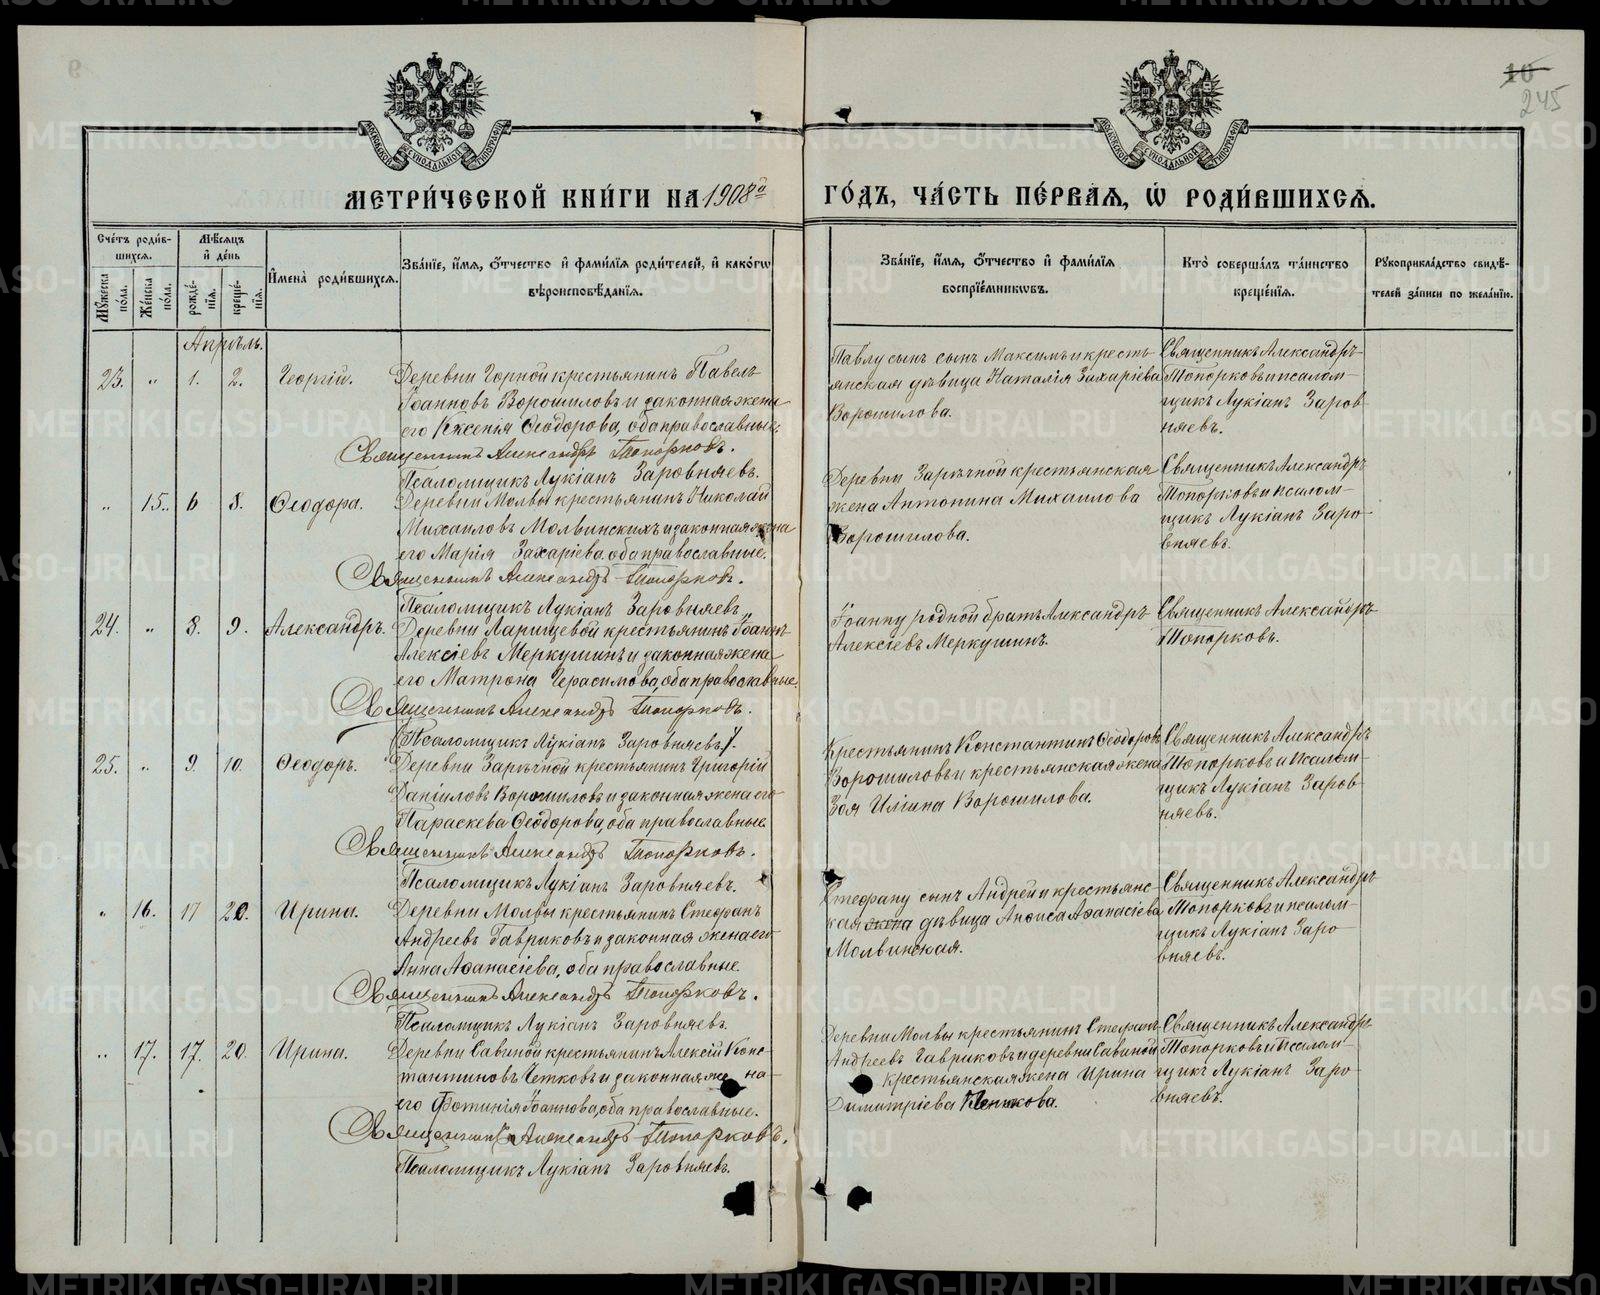 10
245
МОСКОВСКОЙ СѴНОДАЛЬНОЙ ТИПОГРАФІИ
МОСКОВСКОЙ СѴНОДАЛЬНОЙ ТИПОГРАФІИ
МЕТРИ́ЧЕСКОЙ КНИ́ГИ НА 1908й
ГО́ДЪ, ЧА́СТЬ ПЕ́РВАѦ, Ѡ҆ РОДИ́ВШИХСѦ.
Сче́тъ роди́вшихсѧ.
Мꙋ́жеска по́ла.
Же́нска по́ла.
Мѣ́сѧцъ и҆ де́нь
рожде́нїѧ.
креще́нїѧ.
И҆мена̀ роди́вшихсѧ.
Зва́нїе, и҆́мѧ, ѻ҆́тчество и҆ фами́лїѧ роди́телей, и҆ како́гѡ
вѣроисповѣ́данїѧ.
Зва́нїе, и҆́мѧ, ѻ҆́тчество и҆ фами́лїѧ
воспрїе́мникѡвъ.
Кто̀ соверша́лъ та́инство
креще́нїѧ.
Рꙋкоприкла́дство свидѣ́телей за́писи по жела́нїю.
Апрѣль.
23. „ 1. 2. Георгій.
Деревни Горной крестьянинъ Павелъ
Іоанновъ Ворошиловъ и законная жена
его Ксенія Ѳеодорова, оба православные.
Священникъ Александръ Топорковъ.
Псаломщикъ Лукіанъ Заровняевъ.
Павлу сынъ сынъ Максимъ и кресть-
янская дѣвица Наталія Захаріева
Ворошилова.
Священникъ Александръ
Топорковъ и псалом-
щикъ Лукіанъ Заров-
няевъ.
„ 15. 6 8. Ѳеодора.
Деревни Молвы крестьянинъ Николай
Михаиловъ Молвинскихъ и законная жена
его Марія Захаріева, оба православные.
Священникъ Александръ Топорковъ.
Псаломщикъ Лукіанъ Заровняевъ.
Деревни Зарѣчной крестьянская
жена Антонина Михаилова
Ворошилова.
Священникъ Александръ
Топорковъ и псалом-
щикъ Лукіанъ Заро-
вняевъ.
24. „ 8. 9. Александръ.
Деревни Ларищевой крестьянинъ Іоаннъ
Алексіевъ Меркушинъ и законная жена
его Матрона Герасимова, оба православные.
Священникъ Александръ Топорковъ.
(Псаломщикъ Лукіанъ Заровняевъ).
Іоанну родной братъ Александръ
Алексіевъ Меркушинъ.
Священникъ Александръ
Топорковъ.
25. „ 9. 10. Ѳеодоръ.
Деревни Зарѣчной крестьянинъ Григорій
Даніиловъ Ворошиловъ и законная жена его
Параскева Ѳеодорова, оба православные.
Священникъ Александръ Топорковъ.
Псаломщикъ Лукіанъ Заровняевъ.
Крестьянинъ Константинъ Ѳеодоровъ
Ворошиловъ и крестьянская жена
Зоя Иліина Ворошилова.
Священникъ Александръ
Топорковъ и псалом-
щикъ Лукіанъ Заров-
няевъ.
„ 16. 17 20. Ирина.
Деревни Молвы крестьянинъ Стефанъ
Андреевъ Гавриковъ и законная жена его
Анна Аѳанасіева, оба православные.
Священникъ Александръ Топорковъ.
Псаломщикъ Лукіанъ Заровняевъ.
Стефану сынъ Андрей и крестьянс-
кая жена дѣвица Анѳиса Аѳанасіева
Молвинская.
Священникъ Александръ
Топорковъ и псалом-
щикъ Лукіанъ Заро-
вняевъ.
„ 17. 17. 20. Ирина.
Деревни Савиной крестьянинъ Алексій Конс-
тантиновъ Четковъ и законная жена
его Фотинія Іоаннова, оба православные.
Священникъ Александръ Топорковъ.
Псаломщикъ Лукіанъ Заровняевъ.
Деревни Молвы крестьянинъ Стефанъ
Андреевъ Гавриковъ и деревни Савиной
крестьянская жена Ирина
Димитріева
Священникъ Александръ
Топорковъ и псалом-
щикъ Лукіанъ Заро-
вняевъ.
METRIKI.GASO-URAL.RU